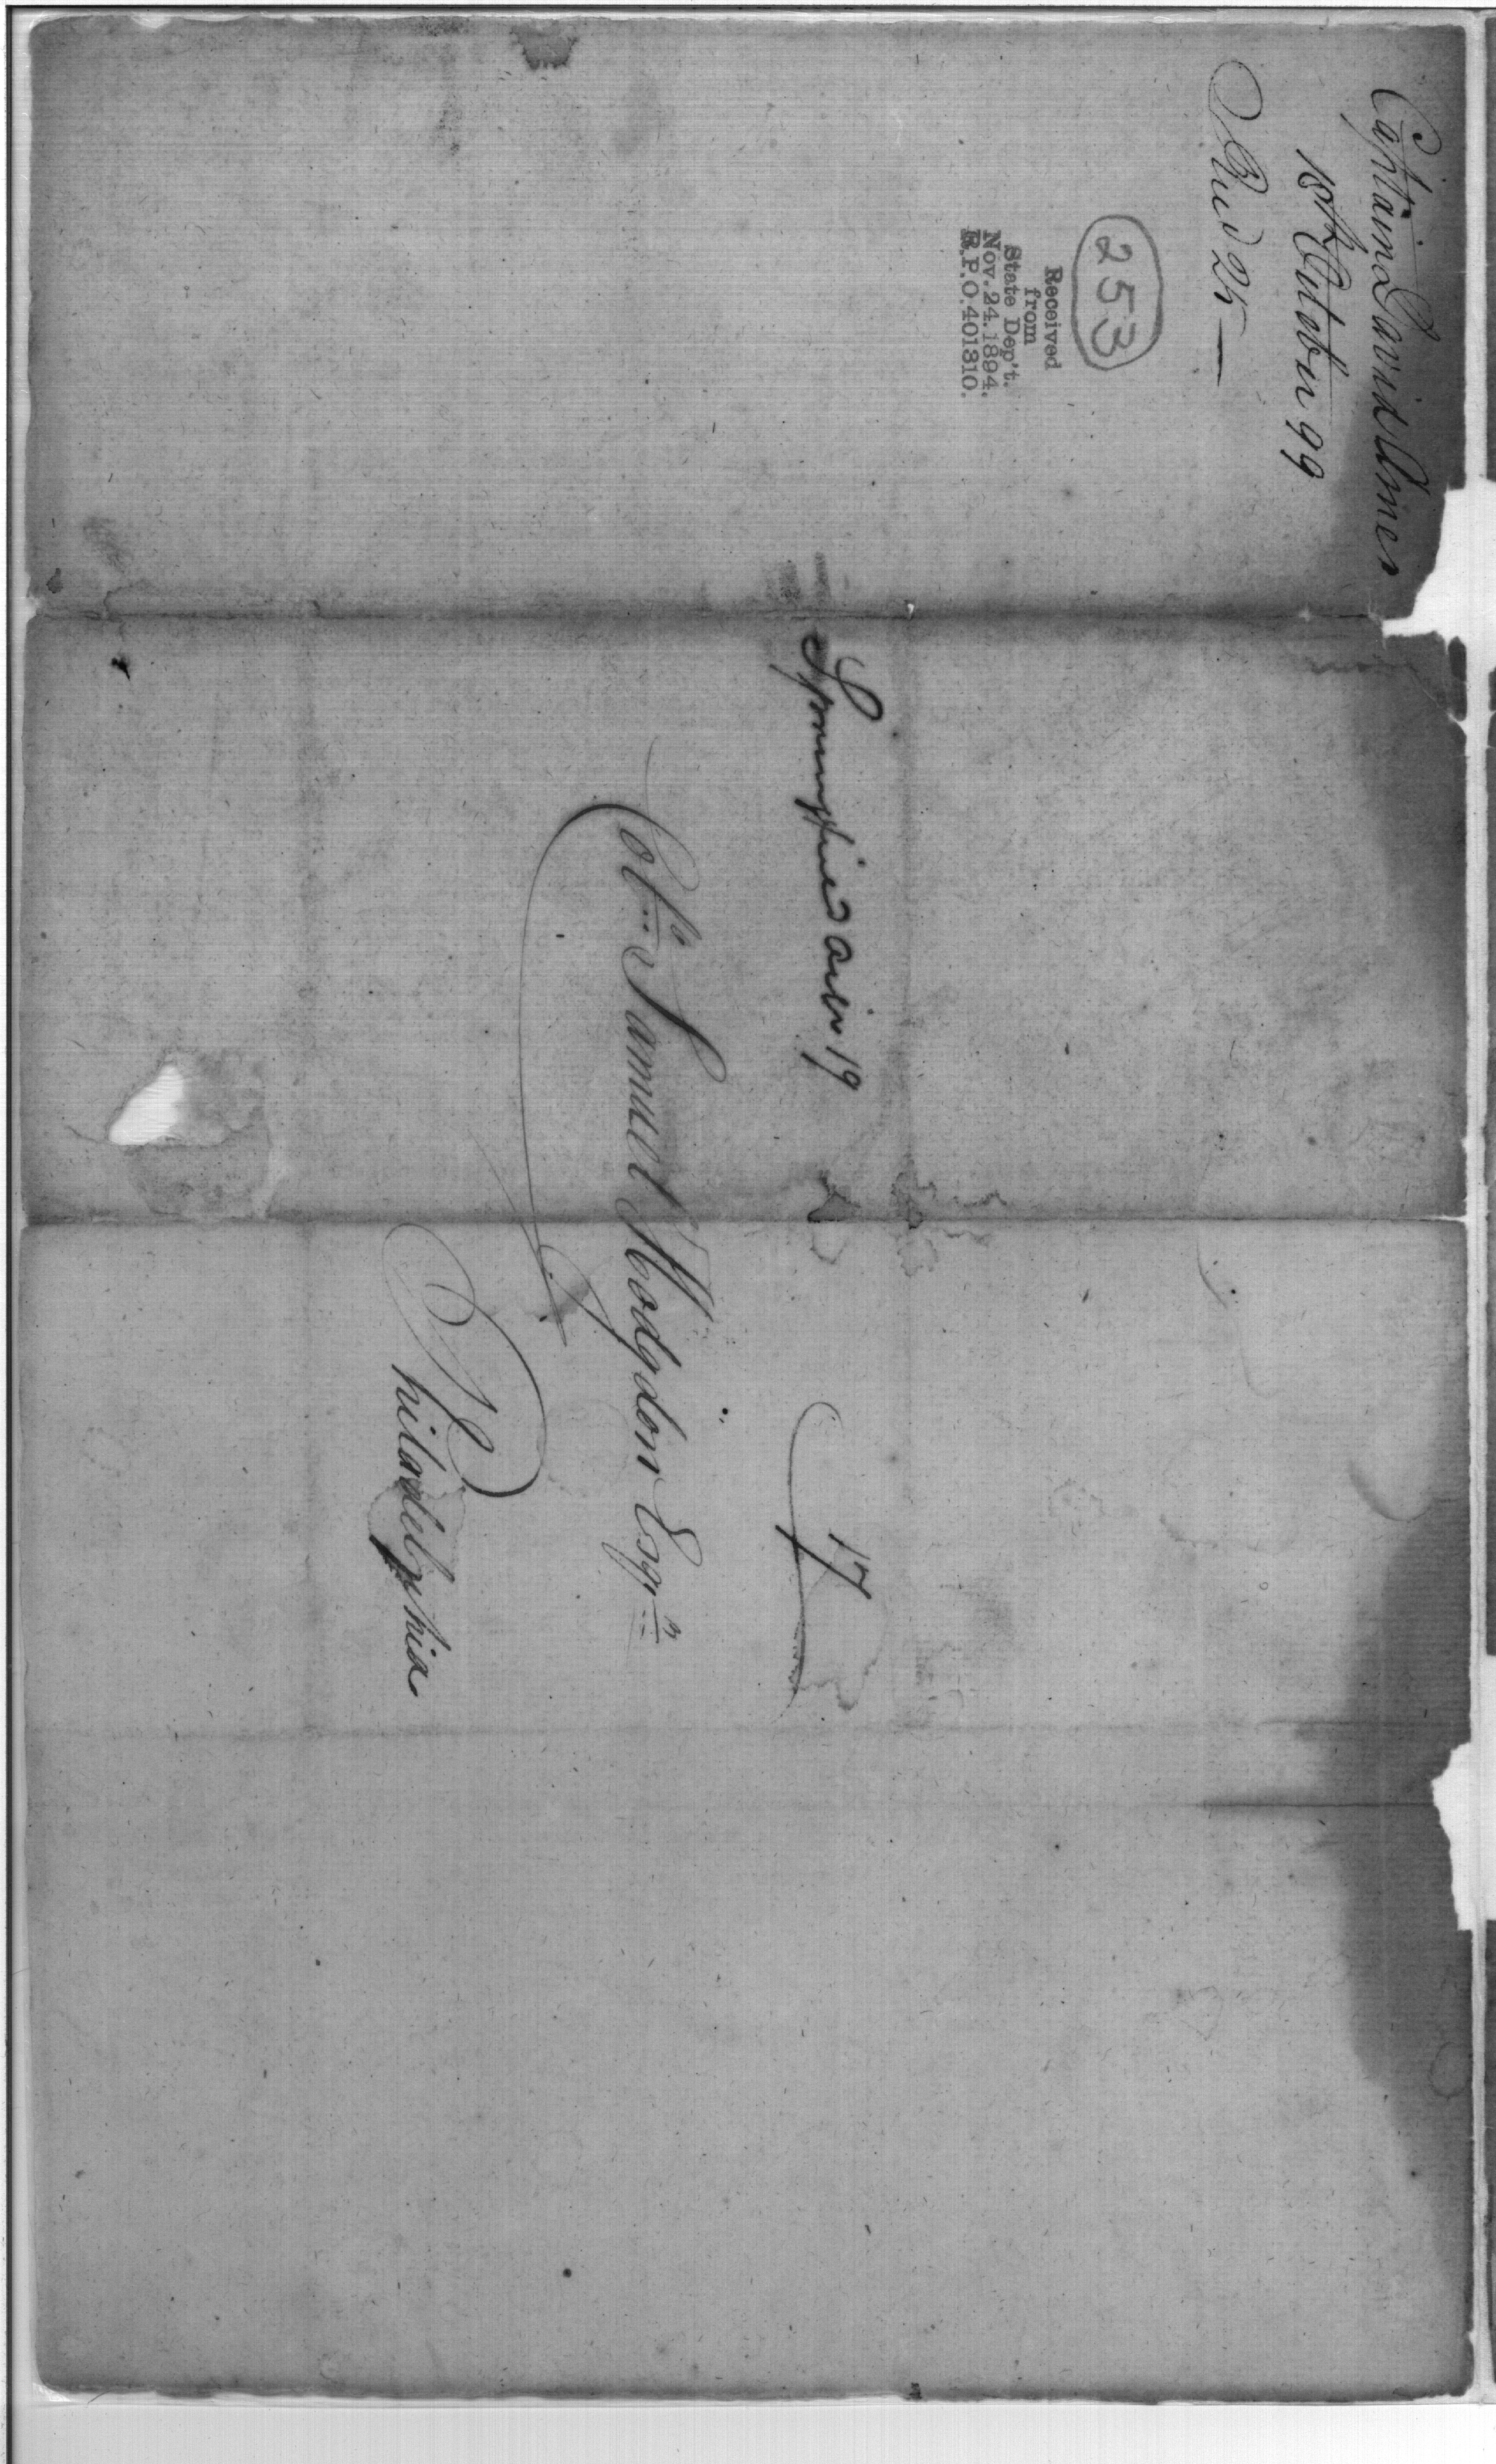 Captain David Ames
18th October 99
Recd 25 —
253
Received
from
State Dep't.
Nov. 24. 1894.
R.P.O. 401310.
Springfield 19
17
Colo. Samuel Hodgdon Esqr.
Philadelphia